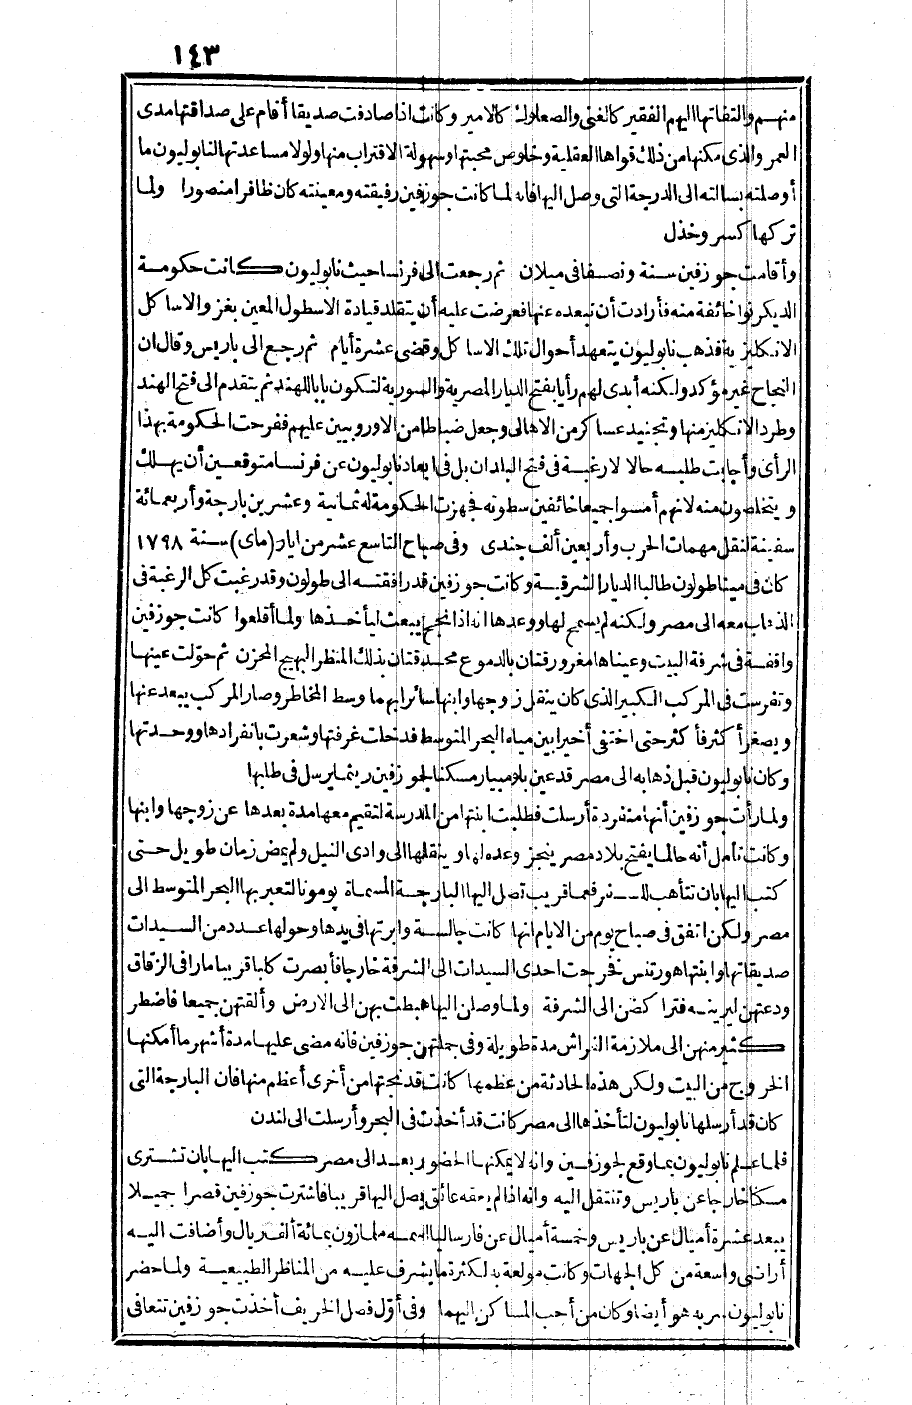 ١٤٣
منهم والتفاتها اليهم الفقير كالغنى والصعلوك كالامير وكانت اذا صادفت صديقا أقام على صداقتها مدى
العمر والذى مكنها من ذلك قواها العقلية وخلوص محبتها وسهولة الاقتراب منها ولولا مساعدتها لنابوليون ما
أوصلته بسالته الى الدرجة التى وصل اليها فانه لما كانت جوزفين رفيقته ومعينته كان ظافرا منصورا ولما
تركها كسر وخذل
وأقامت جوزفين سنة ونصفا فى ميلان ثم رجعت الى فرنسا حيث نابوليون كانت حكومة
الديركتوا خائفة منه فأرادت أن تبعده عنها فعرضت عليه أن يتقلد قيادة الاسطول المعين بغزو الاساكل
الانكليزية فذهب نابوليون يتعهد أحوال تلك الاساكل وقضى عشرة أيام ثم رجع الى باريس وقال ان
النجاح غير مؤكد ولكنه أبدى لهم رأيا بفتح الديار المصرية والسورية لتكون بابا للهند ثم يتقدم الى فتح الهند
وطرد الانكليز منها وتجنيد عساكر من الاهالى وجعل ضباطا من الاوروبيين عليهم ففرحت الحكومة بهذا
الرأى وأجابت طلبه حالا لا رغبة فى فتح البلدان بل فى ابعاد نابوليون عن فرنسا متوقعين أن يهلك
ويتخلصون منه لانهم أمسوا جميعا خائفين سطوته فجهزت الحكومة له ثمانية وعشرين بارجة وأربعمائة
سفينة لنقل مهمات الحرب وأربعين ألف جندى وفى صباح التاسع عشر من ايار (ماى) سنة ١٧٩٨
كان فى مينا طولون طالبا الديار الشرقية وكانت جوزفين قد رافقته الى طولون وقد رغبت كل الرغبة فى
الذهاب معه الى مصر ولكنه لم يسمح لها ووعدها انه اذا نجح يبعث ليأخذها ولما أقلعوا كانت جوزفين
واقفة فى شرفة البيت وعيناها مغرورقتان بالدموع محدقتان بذلك المنظر البهيج المحزن ثم حوّلت عينها
وتفرست فى المركب الكبير الذى كان ينقل زوجها وابنها سائرا بهما وسط المخاطر وصار المركب يبعد عنها
ويصغر أكثر فأكثر حتى اختفى أخيرا بين مياه البحر المتوسط فدخلت غرفتها وشعرت بانفرادها ووحدتها
وكان نابوليون قبل ذهابه الى مصر قد عين بلومبيار مسكنا لجوزفين ريثما يرسل فى طلبها
ولما رأت جوزفين أنها منفردة أرسلت فطلبت ابنتها من المدرسة لتقيم معها مدة بعدها عن زوجها وابنها
وكانت تأمل أنه حالما يفتح بلاد مصر ينجز وعده لها وينقلها الى وادى النيل ولم يمض زمان طويل حتى
كتب اليها بان تتأهب للسفر فعما قريب تصل اليها البارجة المسماة پومونا لتعبر بها البحر المتوسط الى
مصر ولكن اتفق فى صباح يوم من الايام انها كانت جالسة وابرتها فى يدها وحولها عدد من السيدات
صديقاتها وابنتها هورتنس فخرجت احدى السيدات الى الشرفة خارجا فأبصرت كلبا قريبا مارا فى الزقاق
ودعتهن ليرينه فتراكضن الى الشرفة ولما وصلن اليها هبطت بهن الى الارض وألقتهن جميعا فاضطر
كثير منهن الى ملازمة الفراش مدة طويلة وفى جملتهن جوزفين فانه مضى عليها مدة أشهر ما أمكنها
الخروج من البيت ولكن هذه الحادثة من عظمها كانت قد نجتها من أخرى أعظم منها فان البارجة التى
كان قد أرسلها نابوليون لتأخذها الى مصر كانت قد أخذت فى البحر وأرسلت الى لندن
فلما علم نابوليون بما وقع لجوزفين وانه لا يمكنها الحضور بعد الى مصر كتب اليها بان تشترى
مسكنا خارجا عن باريس وتنتقل اليه وانه اذا لم يعقه عائق يصل اليها قريبا فاشترت جوزفين قصرا جميلا
يبعد عشرة أميال عن باريس وخمسة أميال عن فارساليا اسمه ملمازون بمائة ألف ريال وأضافت اليه
أراضى واسعة من كل الجهات وكانت مولعة به لكثرة ما يشرف عليه من المناظر الطبيعية ولما حضر
نابوليون سر به هو أيضا وكان من أحب المساكن اليهما وفى أوّل فصل الخريف أخذت جوزفين تتعافى